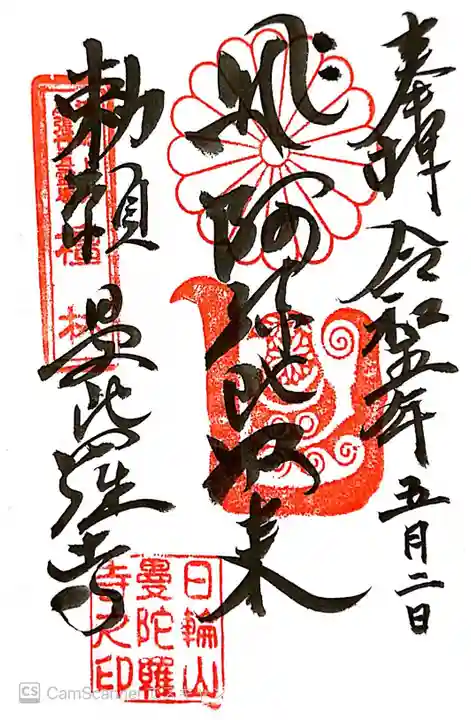 奉拝 令和五年 五月二日
阿弥陀如来
勅願 曼陀羅寺
日輪山
曼陀羅
寺之印
CS CamScanner